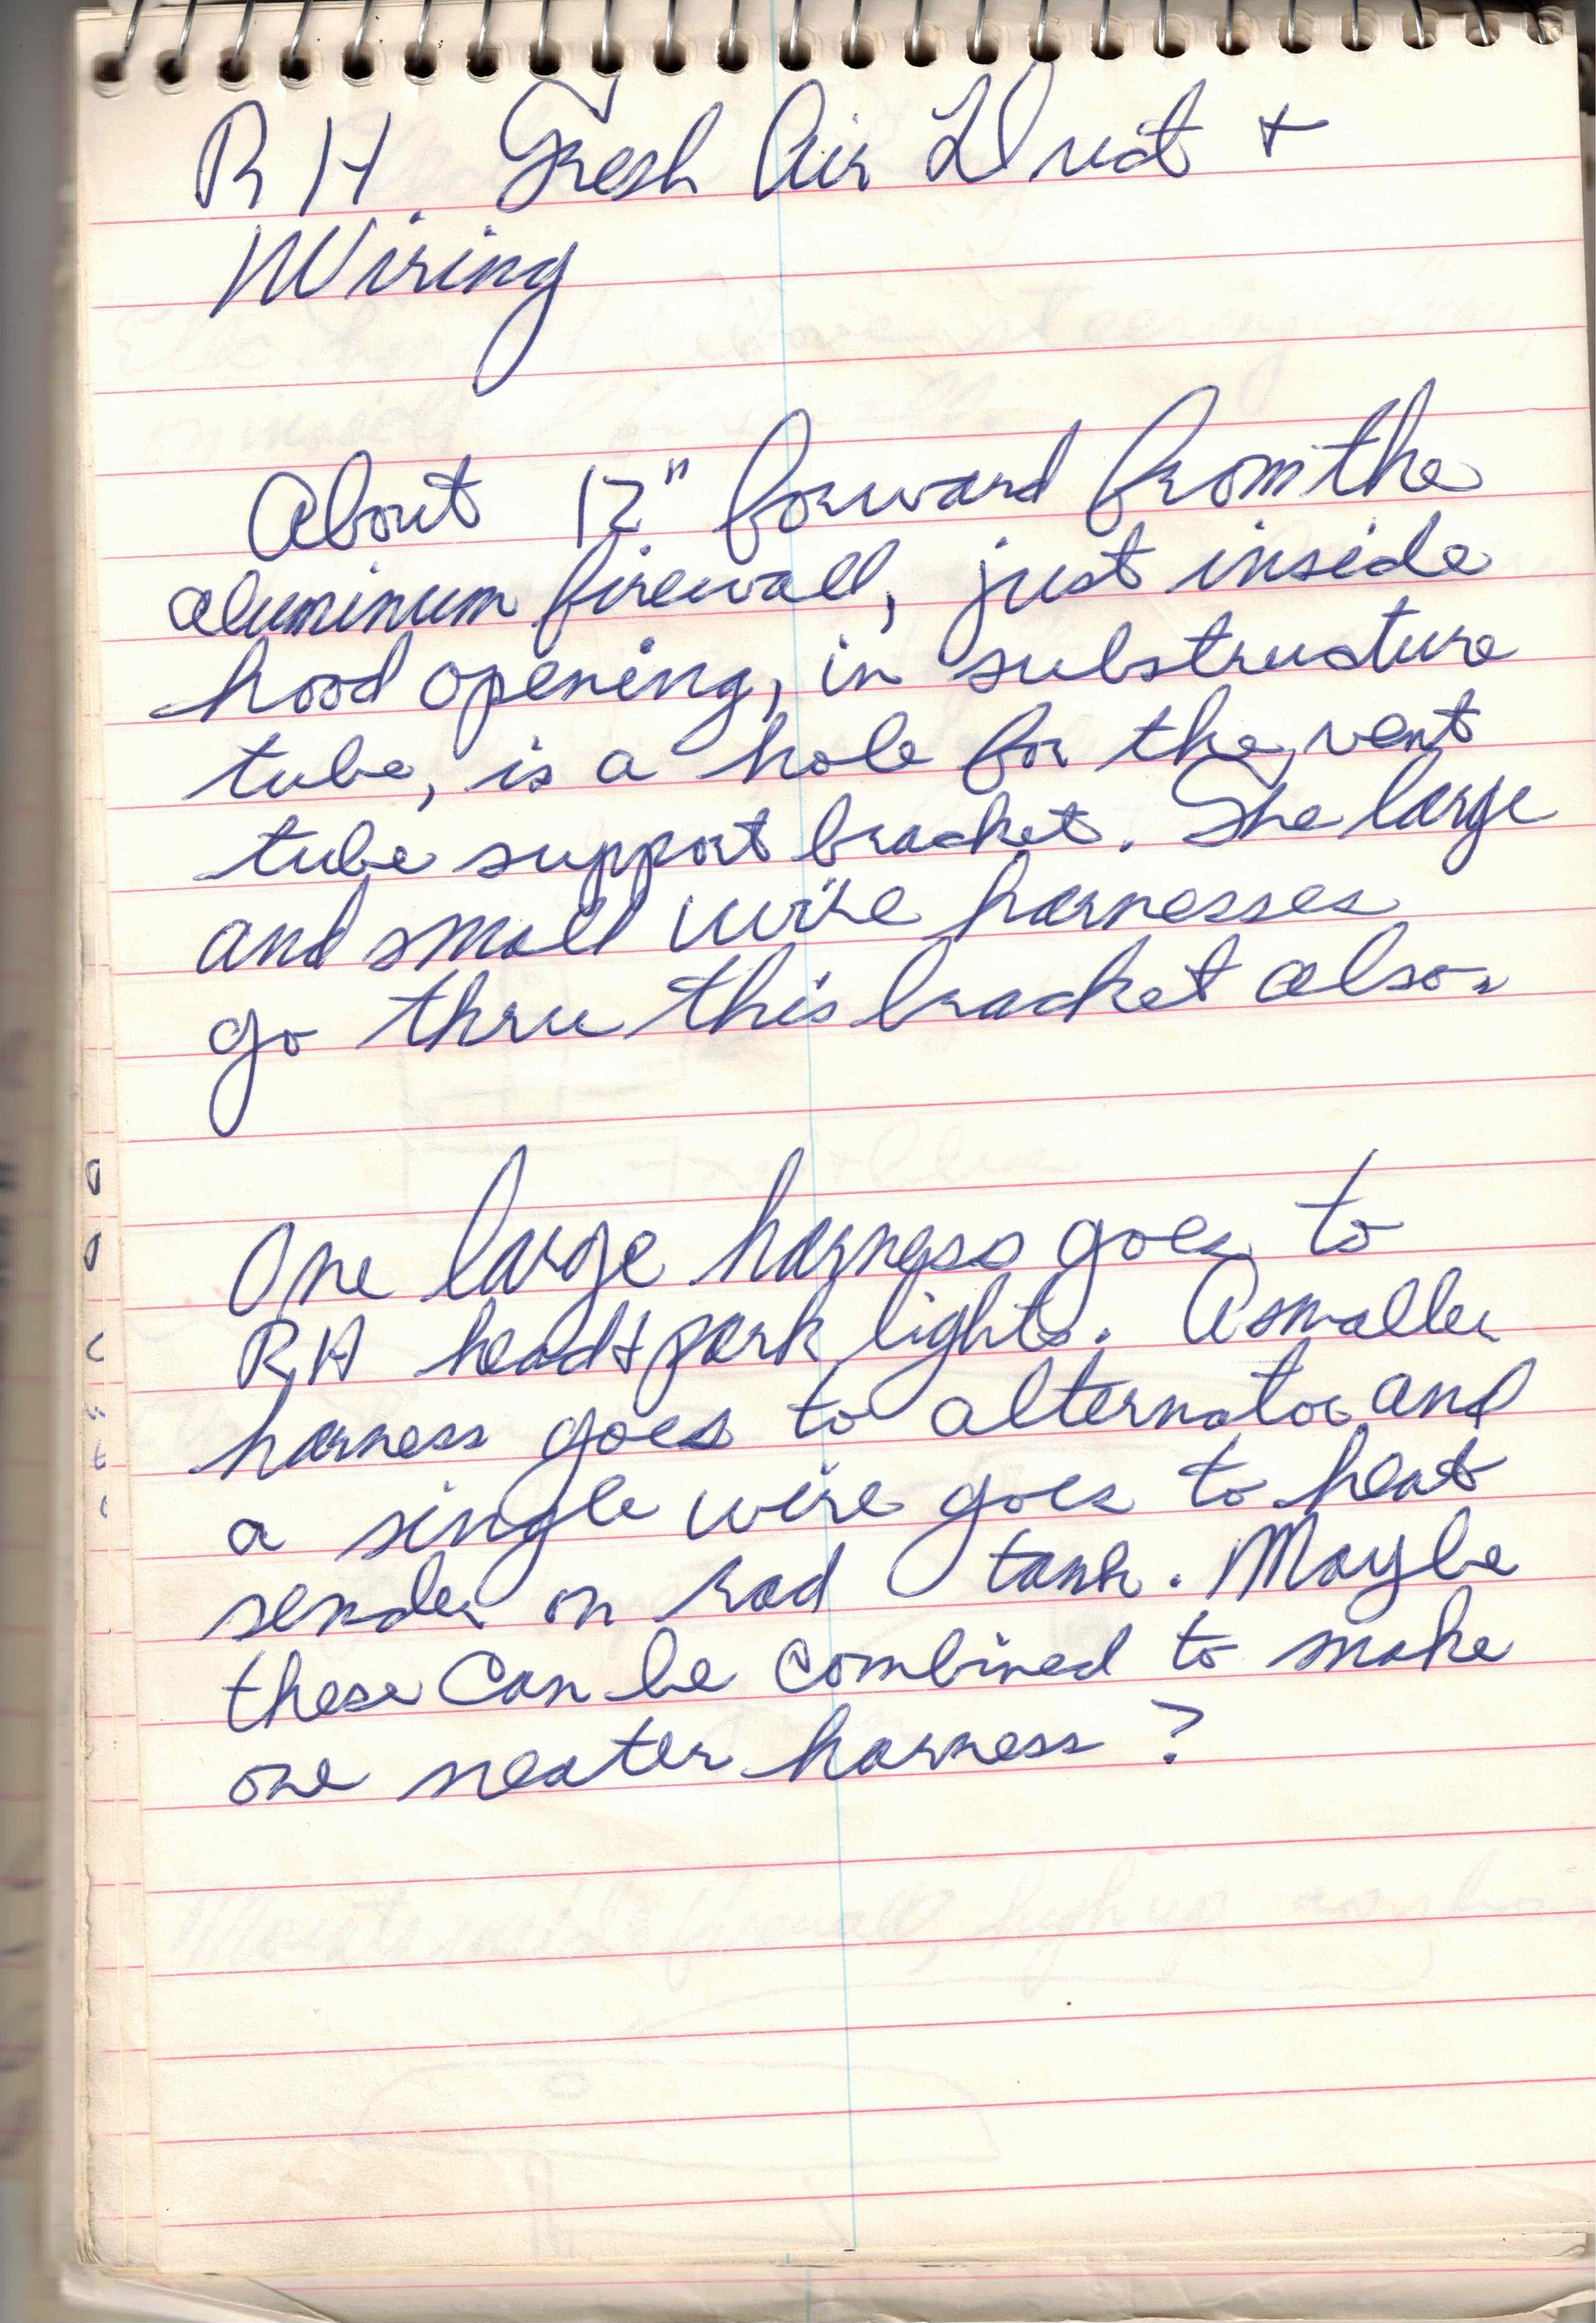 RH Fresh Air Duct +
Wiring
About 12" forward from the
aluminum firewall, just inside
hood opening, in substructure
tube, is a hole for the vent
tube support bracket. The large
and small wire harnesses
go thru this bracket also.
One large harness goes to
RH head + park lights. A smaller
harness goes to alternator and
a single wire goes to heat
sender on rad tank. Maybe
these can be combined to make
one neater harness?